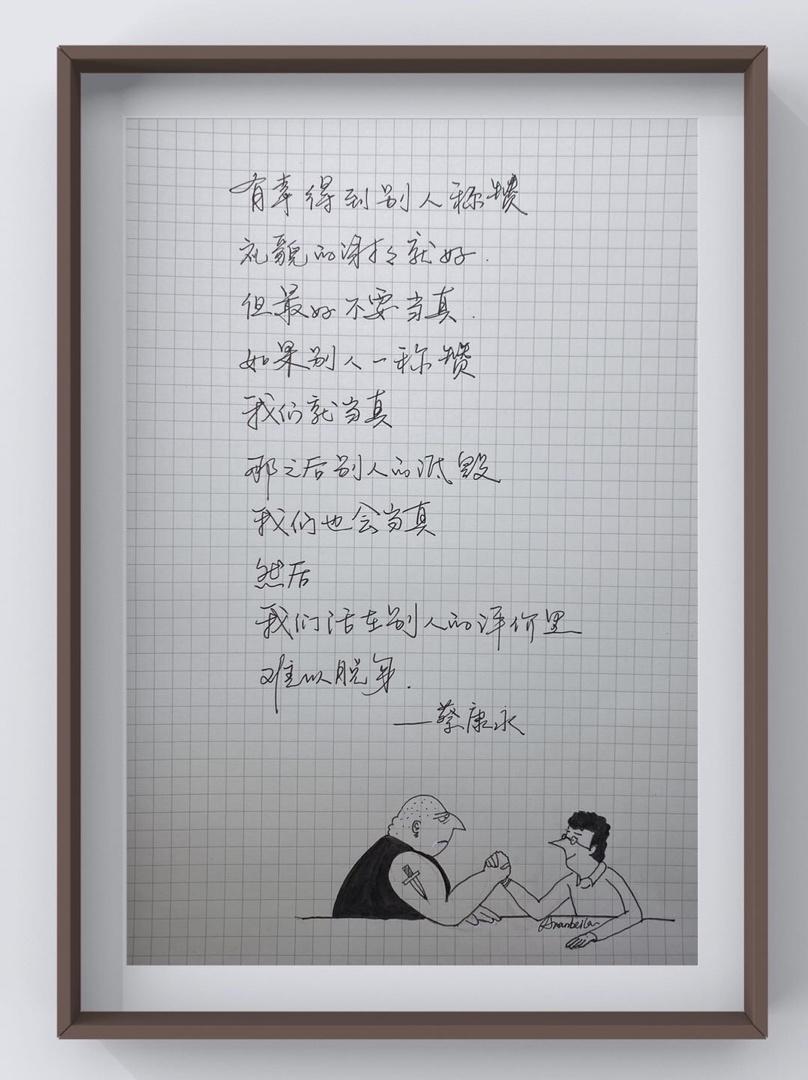 有幸得到别人称赞
礼貌的谢于就好.
但最好不要当真.
如果别人一称赞
我们就当真
那之后别人的诋毁
我们也会当真
然后
我们活在别人的评价里
难以脱身.
—蔡康永